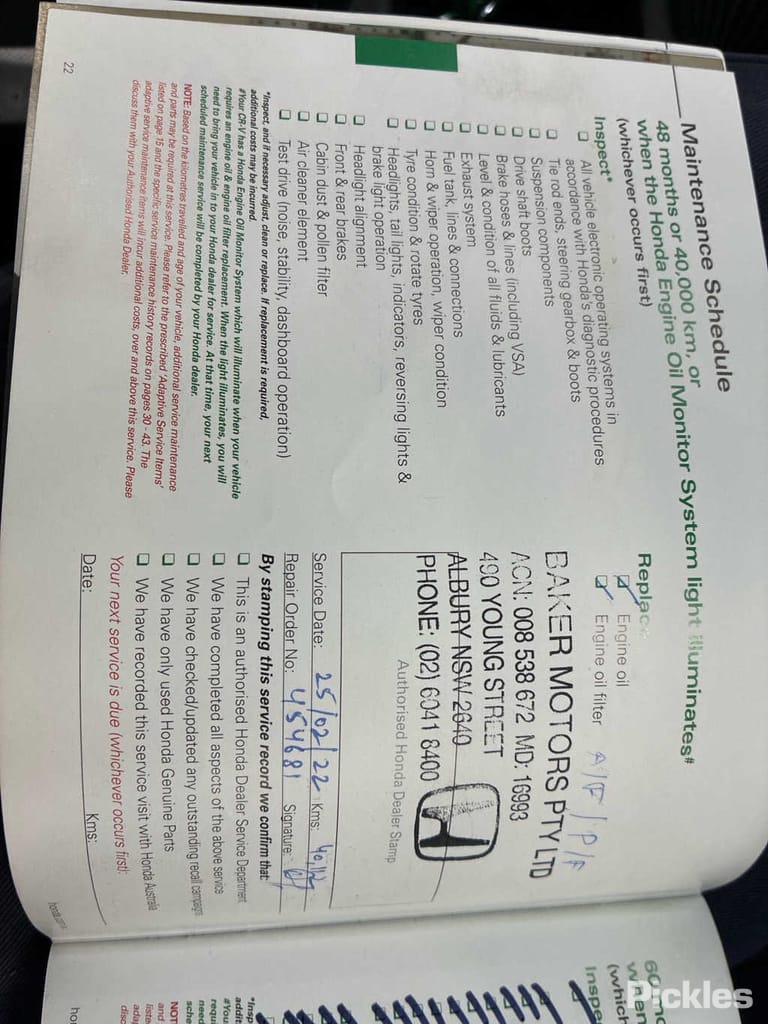 Maintenance Schedule
48 months or 40,000 km, or
when the Honda Engine Oil Monitor System light illuminates#
(whichever occurs first)
Inspect*
All vehicle electronic operating systems in
accordance with Honda's diagnostic procedures
Tie rod ends, steering gearbox & boots
Suspension components
Drive shaft boots
Brake hoses & lines (including VSA)
Level & condition of all fluids & lubricants
Exhaust system
Fuel tank, lines & connections
Horn & wiper operation, wiper condition
Tyre condition & rotate tyres
Headlights, tail lights, indicators, reversing lights &
brake light operation
Headlight alignment
Front & rear brakes
Cabin dust & pollen filter
Air cleaner element
Test drive (noise, stability, dashboard operation)
*Inspect, and if necessary adjust, clean or replace. If replacement is required,
additional costs may be incurred.
#Your CR-V has a Honda Engine Oil Monitor System which will illuminate when your vehicle
requires an engine oil & engine oil filter replacement. When the light illuminates, you will
need to bring your vehicle in to your Honda dealer for service. At that time, your next
scheduled maintenance service will be completed by your Honda dealer.
NOTE: Based on the kilometres travelled and age of your vehicle, additional service maintenance
and parts may be required at this service. Please refer to the prescribed 'Adaptive Service Items'
listed on page 15 and the specific service maintenance history records on pages 30 - 43. The
adaptive service maintenance items will incur additional costs, over and above this service. Please
discuss them with your Authorised Honda Dealer.
22
Replace
Engine oil
Engine oil filter
A/F / P/F
BAKER MOTORS PTY LTD
ACN: 008 538 672 MD: 16993
490 YOUNG STREET
ALBURY NSW 2640
PHONE: (02) 6041 8400
Authorised Honda Dealer Stamp
Service Date: 25/02/22 Kms:
Repair Order No: 454681 Signature:
By stamping this service record we confirm that:
This is an authorised Honda Dealer Service Department
We have completed all aspects of the above service
We have checked/updated any outstanding recall campaigns
We have only used Honda Genuine Parts
We have recorded this service visit with Honda Australia
Your next service is due (whichever occurs first):
Date: Kms:
Pickles